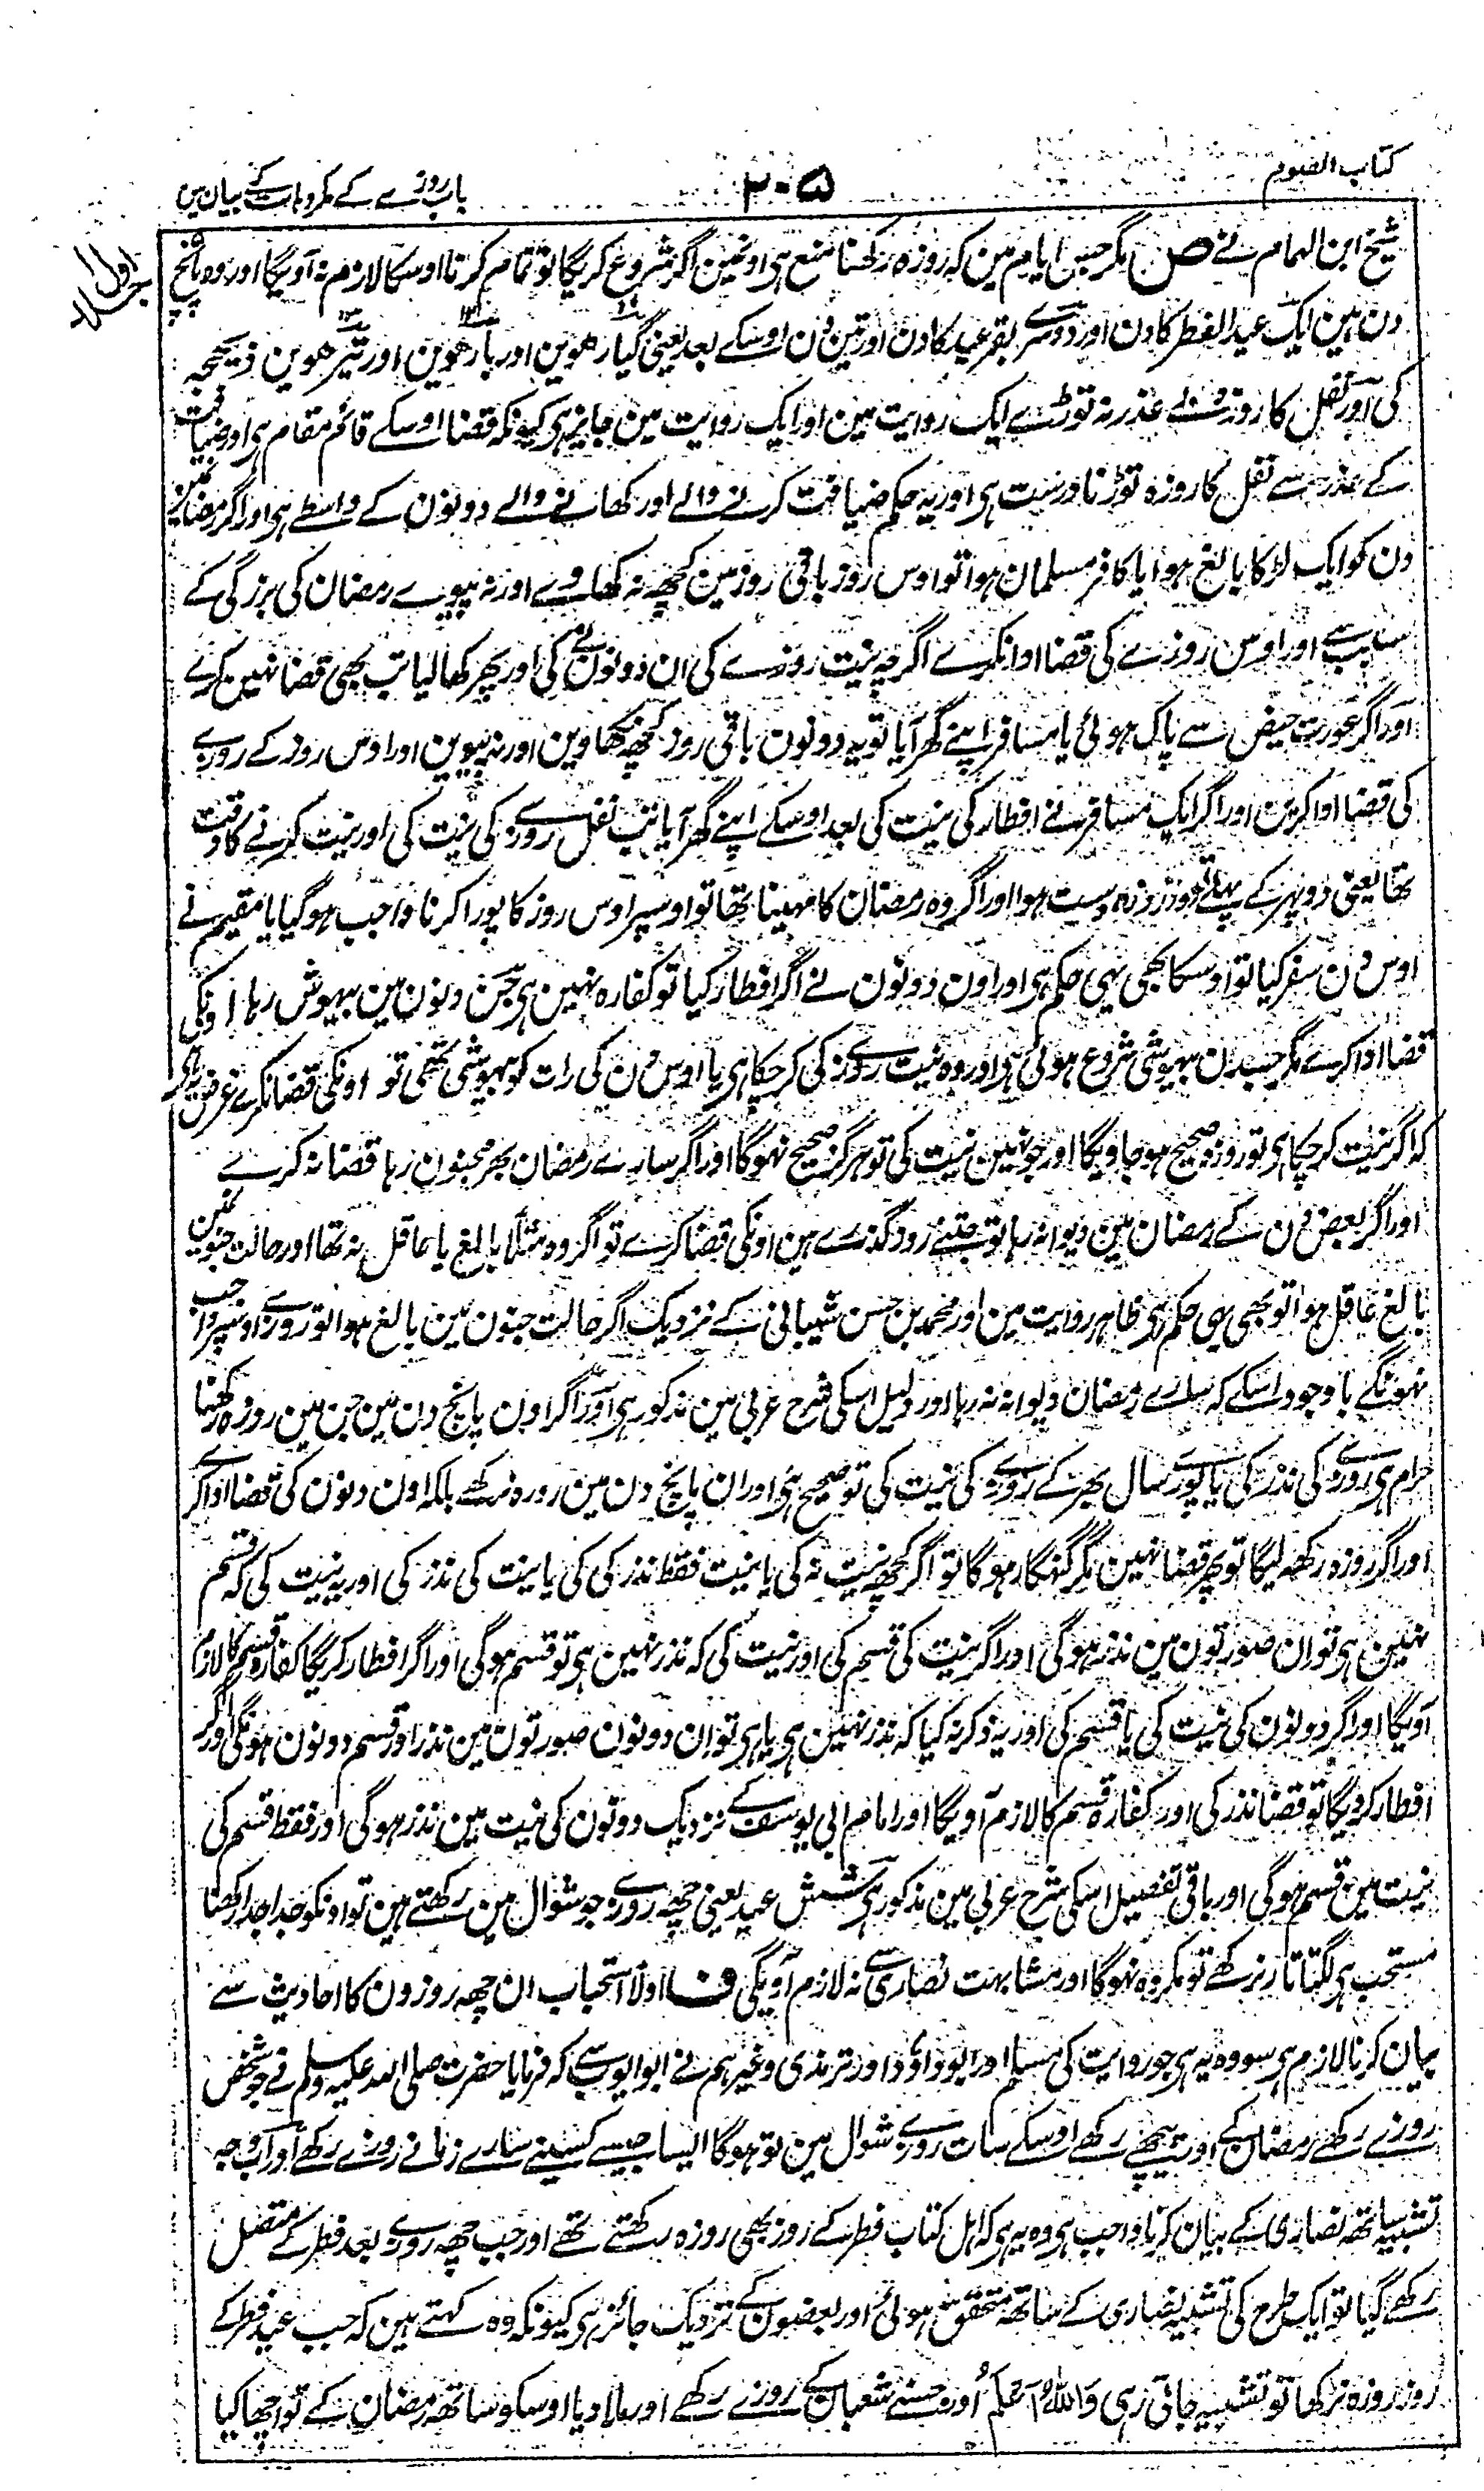 کتاب الصوم
۲۰۵
باب روزے کے مکروہات کے بیان میں
جلد اول
شیخ ابن الہمام نے ص مگر جن ایام مین کہ روزہ رکھنا منع ہی اونمین اگر شروع کریگا تو تمام کرنا اوسکا لازم نہ آویگا اور وہ پانچ
دن ہین ایک عید الفطر کا دن اور دوسرے بقرعید کا دن اور تین دن اوسکے بعد یعنی گیارھوین اور بارھوین اور تیرھوین ذیحجہ
کی اور نفل کا روزہ بے عذر نہ توڑے ایک روایت مین اور ایک روایت مین جایز ہی کیونکہ قضا اوسکے قائم مقام ہی اور ضیافت
کے عذر سے نفل کا روزہ توڑنا درست ہی اور یہ حکم ضیافت کرنے والے اور کھانے والے دونون کے واسطے ہی اور اگر رمضان مین
دن کو ایک لڑکا بالغ ہوا یا کافر مسلمان ہوا تو اوس روز باقی روز مین کچھ نہ کھاوے اور نہ پیوے رمضان کی بزرگی کے
سبب سے اور اوس روزے کی قضا ادا نکرے اگرچہ نیت روزے کی ان دونون نے کی اور پھر کھا لیا تب بھی قضا نہین کرے
اور اگر عورت حیض سے پاک ہوئی یا مسافر اپنے گھر آیا تو یہ دونون باقی روز کچھ نکھاوین اور نہ پیوین اور اوس روز کے روزے
کی قضا ادا کرین اور اگر ایک مسافر نے افطار کی نیت کی بعد اوسکے اپنے گھر آیا تب نفل روزے کی نیت کی اور نیت کرنے کا وقت
تھا یعنی دوپہر کے پہلے تو روزہ درست ہوا اور اگر وہ رمضان کا مہینا تھا تو اوسپر اوس روز کا پورا کرنا واجب ہو گیا یا مقیم نے
اوس دن سفر کیا تو اوسکا بھی یہی حکم ہی اور اون دونون نے اگر افطار کیا تو کفارہ نہین ہی جن دنون مین بیہوش رہا اونکی
قضا ادا کرے مگر جس دن بیہوشی شروع ہوئی ہی اور وہ نیت روزے کی کر چکا ہی یا اوس دن کی رات کو بیہوشی تھی تو اونکی قضا نکرے غرض یہ ہی
کہ اگر نیت کر چکا ہی تو روزہ صحیح ہو جاویگا اور جو نہین نیت کی تو ہرگز صحیح نہوگا اور اگر سارے رمضان بھر مجنون رہا قضا نہ کرے
اور اگر بعض دن کے رمضان مین دیوانہ رہا تو جتنے روز گذرے ہین اونکی قضا کرے تو اگر وہ مثلًا بالغ یا عاقل نہ تھا اور حالت جنون مین
بالغ عاقل ہوا تو بھی یہی حکم ہی ظاہر روایت مین اور محمد بن حسن شیبانی کے نزدیک اگر حالت جنون مین بالغ ہوا تو روزے اوسپر واجب
نہونگے باوجود اسکے کہ سارے رمضان دیوانہ نہ رہا اور دلیل اسکی شرح عربی مین مذکور ہی اور اگر اون پانچ دن مین جن مین روزہ رکھنا
حرام ہی روزے کی نذر کی یا پورے سال بھر کے روزے کی نیت کی تو صحیح ہی اور ان پانچ دن مین روزہ نرکھے بلکہ اون دنون کی قضا ادا کرے
اور اگر روزہ رکھ لیگا تو پھر قضا نہین مگر گنہگار ہوگا تو اگر کچھ نیت نہ کی یا نیت فقط نذر کی کی یا نیت کی نذر کی اور یہ نیت کی کہ قسم
نہین ہی تو ان صورتون مین نذر ہوگی اور اگر نیت کی قسم کی اور نیت کی کہ نذر نہین ہی تو قسم ہوگی اور اگر افطار کریگا کفارہ قسم کا لازم
آویگا اور اگر دونون کی نیت کی یا قسم کی اور یہ ذکر نہ کیا کہ نذر نہین ہی یا ہی تو ان دونون صورتون مین نذر اور قسم دونون ہونگی اور اگر
افطار کریگا تو قضا نذر کی اور کفارہ قسم کا لازم آویگا اور امام ابی یوسف کے نزدیک دونون کی نیت مین نذر ہوگی اور فقط قسم کی
نیت مین قسم ہوگی اور باقی تفصیل اسکی شرح عربی مین مذکور ہی شش عید یعنی چھہ روزے جو شوال مین رکھتے ہین تو اونکو جدا جدا رکھنا
مستحب ہی لگتا تار نرکھے تو مکروہ نہوگا اور مشابہت نصاری سے نہ لازم آویگی ف اولًا استحباب ان چھہ روزون کا احادیث سے
بیان کرنا لازم ہی سو وہ یہ ہی جو روایت کی مسلم اور ابو داؤد اور ترمذی وغیرہم نے ابو ایوب سے کہ فرمایا حضرت صلی اللہ علیہ وسلم نے جو شخص
روزے رکھے رمضان کے اور پیچھے رکھے اوسکے سات روزے شوال مین تو ہوگا ایسا جیسے کسینے سارے زمانے روزے رکھے اور اب وجہ
تشبیہ ساتھ نصاری کے بیان کرنا واجب ہی وہ یہ ہی کہ اہل کتاب فطر کے روز بھی روزہ رکھتے تھے اور جب چھہ روزے بعد فطر کے متصل
رکھے گیا تو ایک طرح کی تشبیہ نصاری کے ساتھ متحقق ہوئی اور بعضون کے نزدیک جائز ہی کیونکہ وہ کہتے ہین کہ جب عید فطر کے
روز روزہ نرکھا تو تشبیہ جاتی رہی وَاللہُ اَعلَمُ اور جسنے شعبان کے روزے رکھے اور ملا دیا اوسکو ساتھ رمضان کے تو اچھا کیا